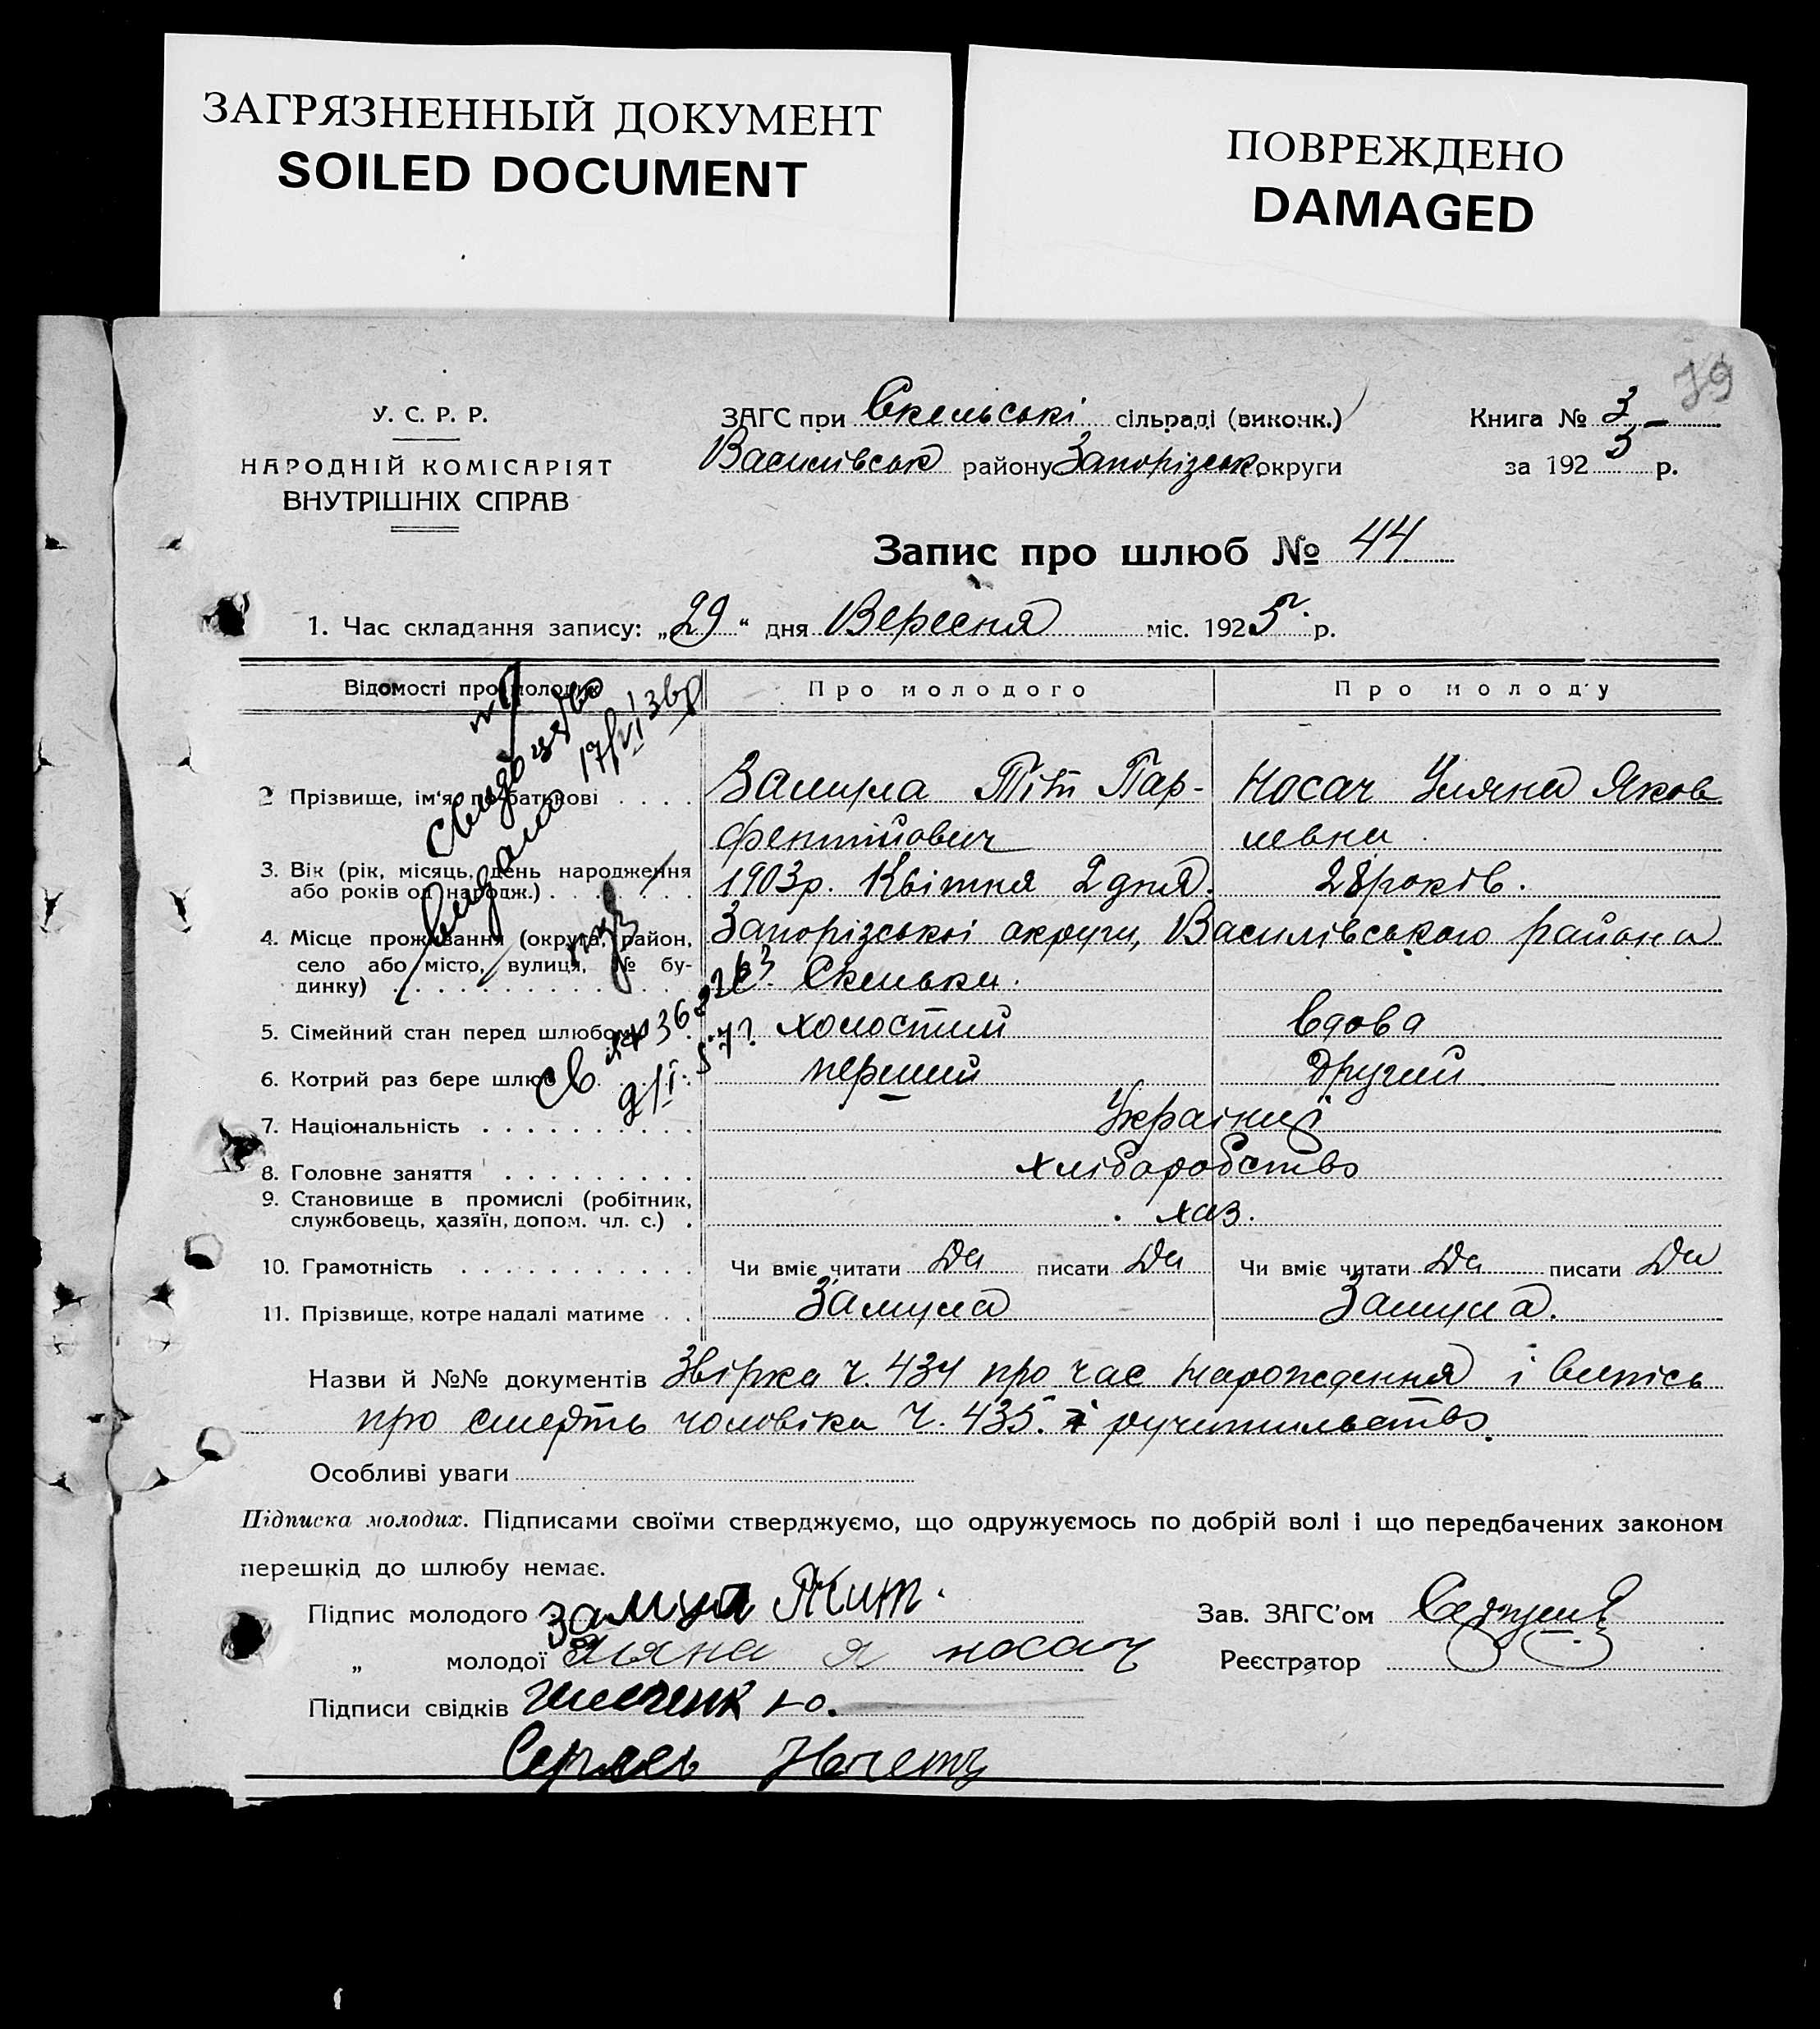 ЗАГРЯЗНЕННЫЙ ДОКУМЕНТ
SOILED DOCUMENT
ПОВРЕЖДЕНО
DAMAGED
79
У. С. Р. Р.
НАРОДНІЙ КОМІСАРІЯТ
ВНУТРІШНІХ СПРАВ
ЗАГС при Скельські сільраді (виконк.)
Василівськ району Запорізськ округи
Книга № 3
за 1925 р.
Запис про шлюб № 44
1. Час складання запису: „29“ дня Вересня міс. 1925 р.
Відомості про молодих
Про молодого
Про молоду
2 Прізвище, ім'я, по батькові . . . .
Замула Тіт Пар-
фентійович
Носач Уляна Яков
левна
3. Вік (рік, місяць, день народження
або років од народж.) . . . . . . .
1903р. Квітня 2 дня.
28 років.
4. Місце проживання (округа, район,
село або місто, вулиця, № бу-
динку) . . . . . . . . . . . . . .
Запорізської округи, Василівського района
с. Скельки.
5. Сімейний стан перед шлюбом
холостий
вдова
6. Котрий раз бере шлюб
перший
другий
7. Національність . . . . . . . . . .
Українці
8. Головне заняття . . . . . . . . .
хліборобство
9. Становище в промислі (робітник,
службовець, хазяїн, допом. чл. с.) .
хаз.
10. Грамотність . . . . . . . . . . .
Чи вміє читати Да писати Да
Чи вміє читати Да писати Да
11. Прізвище, котре надалі матиме . .
Замула
Замула.
видано
17/VI 36р
Назви й №№ документів Звірка ч. 434 про час нарождення і випісь
про смерть чоловіка ч. 435. і ручительство.
Особливі уваги
Підписка молодих. Підписами своїми стверджуємо, що одружуємось по добрій волі і що передбачених законом
перешкід до шлюбу немає.
Підпис молодого Замула Тит.
Зав. ЗАГС'ом
„ молодої Уляна я носач
Реєстратор
Підписи свідків
Сергей